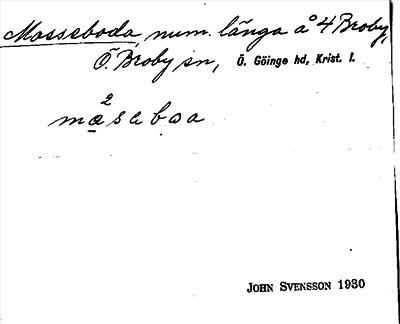 Masseboda, num. länga å 4 Broby,
Ö. Broby sn, Ö. Göinge hd, Krist. l.
2
mase boa
JOHN SVENSSON 1930